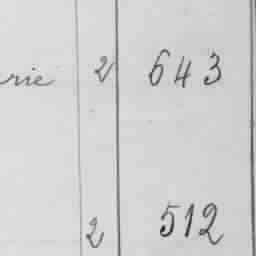 rie 2 643
2 512